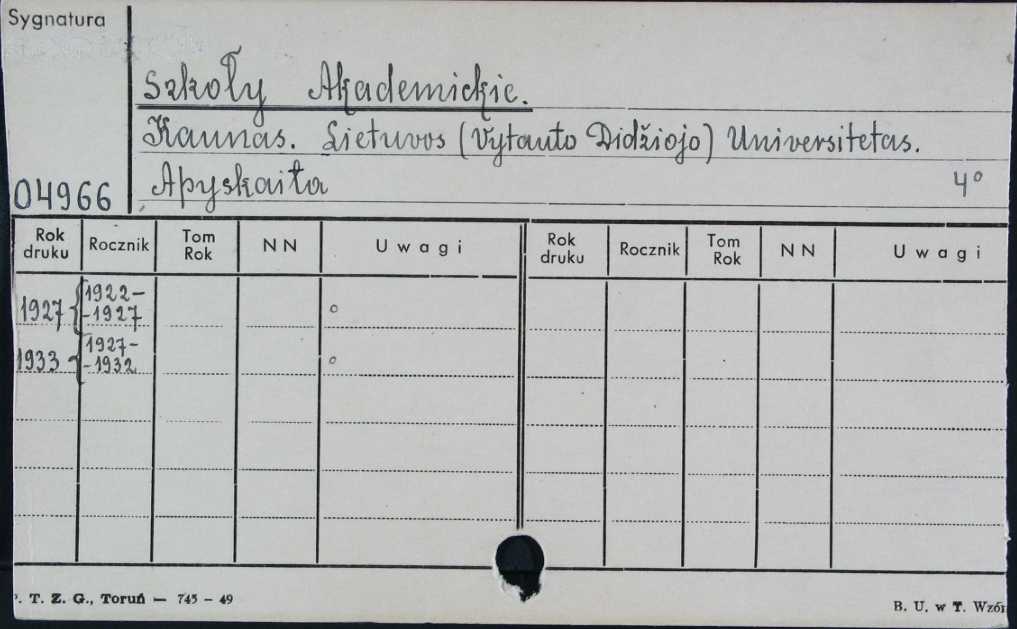 Sygnatura
Szkoły Akademickie.
Kaunas. Lietuvos (Vytauto Didžiojo) Universitetas.
04966 Apyskaita 4°
Rok druku Rocznik Tom Rok NN Uwagi Rok druku Rocznik Tom Rok NN Uwagi
1927 { 1922–
-1927 °
1933 { 1927-
-1932 °
. T. Z. G., Toruń — 745 – 49 B. U. w T. Wzór